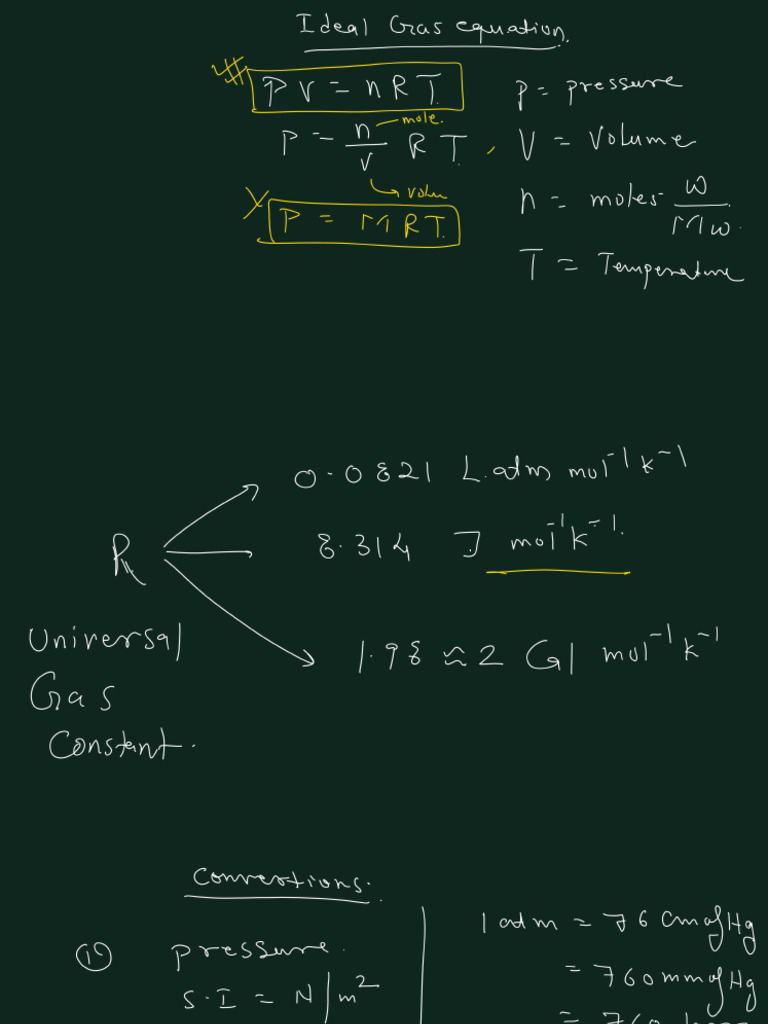 Ideal Gas equation.
PV = nRT.
P = pressure
P = n/V RT,
mole.
V = Volume
P = MRT.
n = moles w/Mw.
T = Temperature
0.0821 L.atm mol⁻¹ k⁻¹
R
8.314 J mol⁻¹ k⁻¹.
1.98 ≈ 2 Cal mol⁻¹ k⁻¹
Universal
Gas
Constant.
1 atm = 76 cm of Hg
pressure.
= 760 mm of Hg
S.I = N/m²